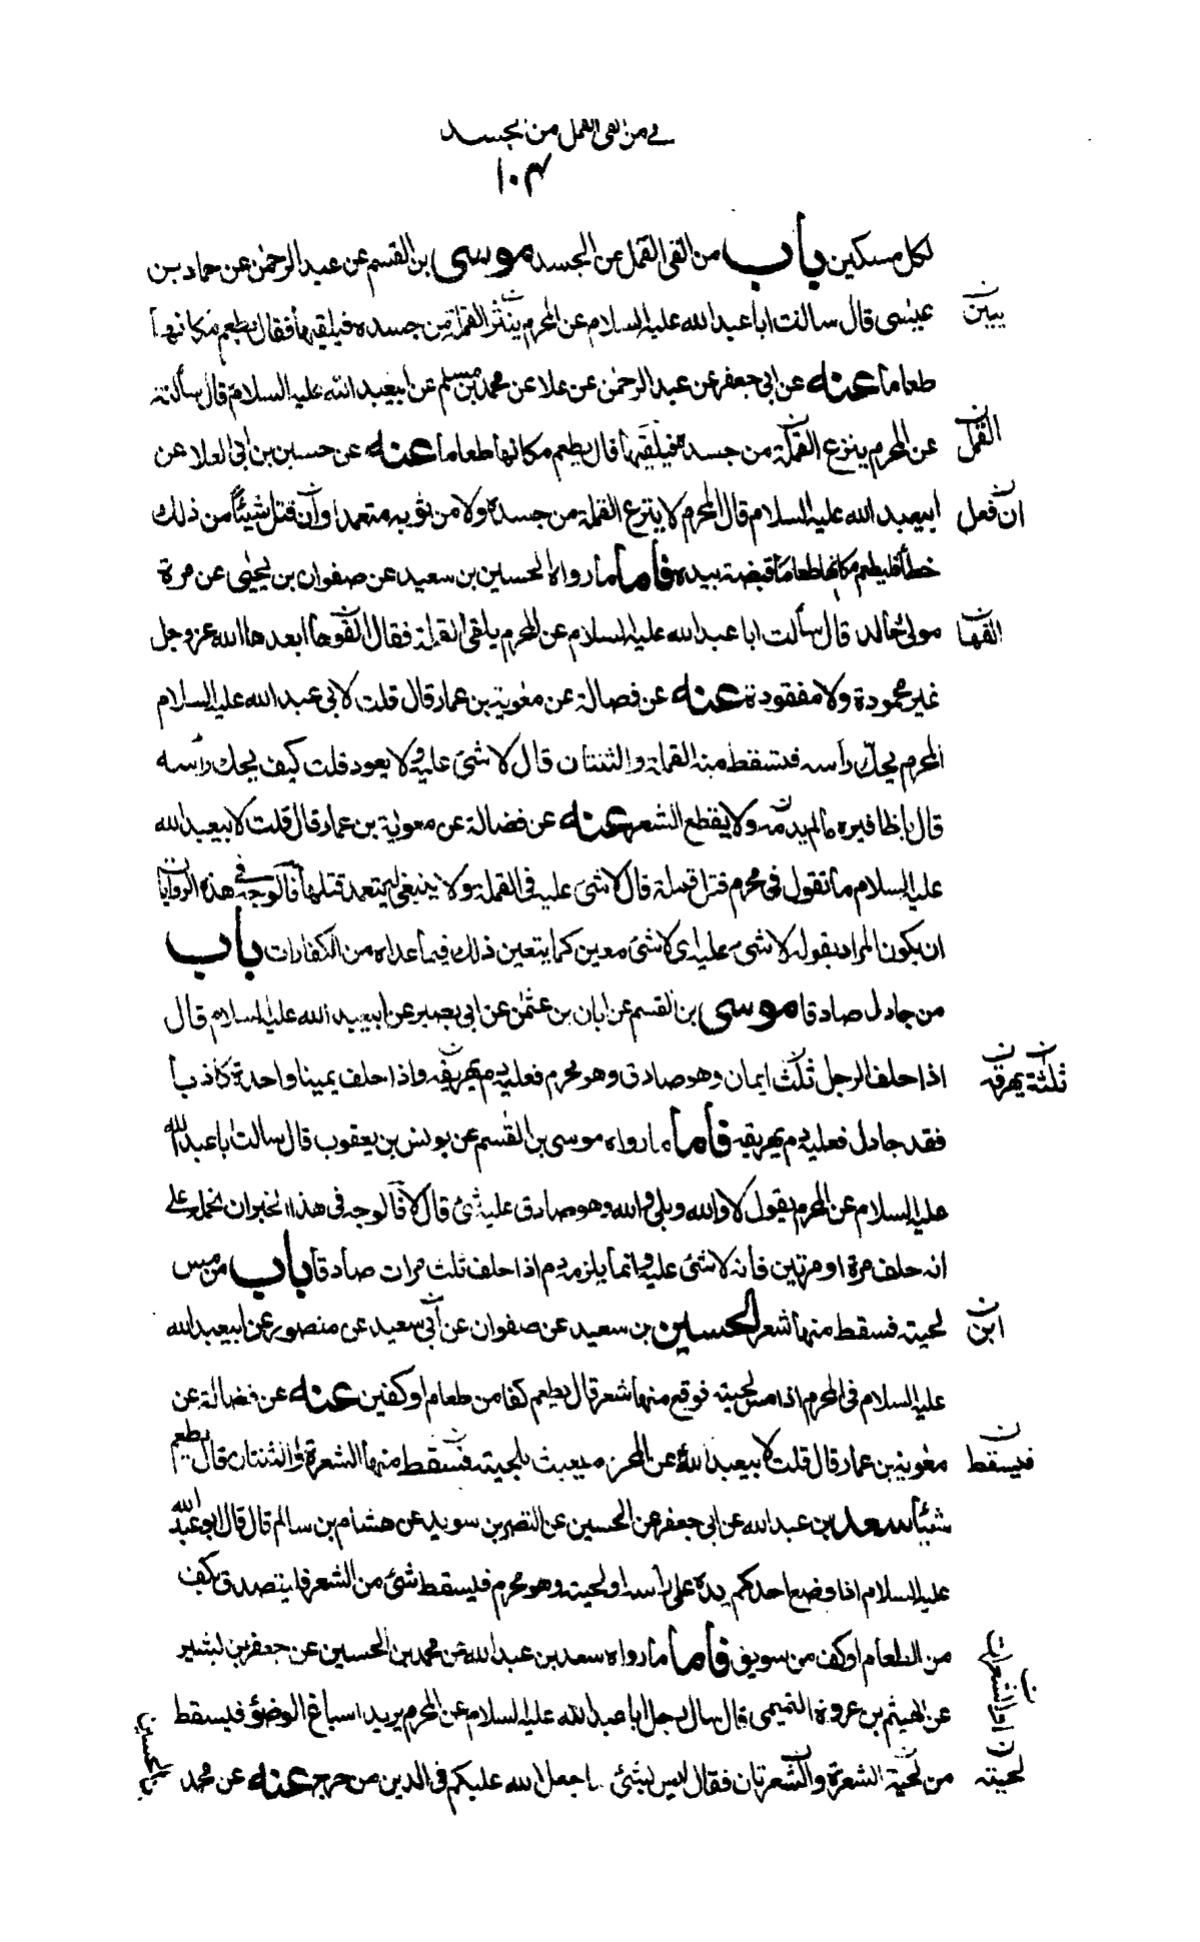 في من القى القمل من الجسد
١٠٤
لكل مسكين باب من القى القمل عن الجسد موسى بن القسم عن عبد الرحمن عن حماد بن
عيسى قال سالت ابا عبد الله عليه السلام عن المحرم ينثر القملة من جسده فيلقيها فقال يطعم مكانها
يبين ن
طعاما عنه عن ابي جعفر عن عبد الرحمن عن علا عن محمد بن مسلم عن ابيعبد الله عليه السلام قال سألته
عن المحرم ينزع القملة من جسده فيلقيها قال يطعم مكانها طعاما عنه عن حسين بن ابي العلا عن
القمل ن
ابيعبد الله عليه السلام قال المحرم لا ينزع القملة من جسده ولا من ثوبه متعمدا وان قتل شيئا من ذلك
ان فعل ن
خطأ فليطعم مكانها طعاما قبضة بيده فاما ما رواه الحسين بن سعيد عن صفوان بن يحيى عن مرة
مولى خالد قال سألت ابا عبد الله عليه السلام عن المحرم يلقى القملة فقال القوها ابعدها الله عز وجل
القها ن
غير محمودة ولا مفقودة عنه عن فضالة عن معوية بن عمار قال قلت لابي عبد الله عليه السلام
المحرم يحك رأسه فتسقط منه القملة والثنتان قال لا شئ عليه ولا يعود قلت كيف يحك رأسه
قال باظافيره مالم يدمه ولا يقطع الشعر عنه عن فضالة عن معوية بن عمار قال قلت لابيعبد الله
عليه السلام ما تقول في محرم قتل قملة قال لا شئ عليه في القملة ولا ينبغي ان يتعمد قتلها فالوجه في هذه الروايات
ان يكون المراد بقوله لا شئ عليه اى لا شئ معين كما يتعين ذلك فيما عداه من الكفارات باب
من جادل صادقا موسى بن القسم عن ابان بن عثمن عن ابي بصير عن ابيعبد الله عليه السلام قال
اذا حلف الرجل ثلث ايمان وهو صادق وهو محرم فعليه دم يهريقه واذا حلف يمينا واحدة كاذبا
ثلثة ن يهرقه ن
فقد جادل فعليه دم يهريقه فاما ما رواه موسى بن القسم عن يونس بن يعقوب قال سالت ابا عبد الله
عليه السلام عن المحرم يقول لا والله وبلى والله وهو صادق عليه شئ قال لا فالوجه في هذا الخبر ان نحمله على
انه حلف مرة او مرتين فانه لا شئ عليه وانما يلزمه دم اذا حلف ثلث مرات صادقا باب من مس
لحيته فسقط منها شعر الحسين بن سعيد عن صفوان عن ابي سعيد عن منصور عن ابيعبد الله
ابن ن
عليه السلام في المحرم اذا مس لحيته فوقع منها شعر قال يطعم كفا من طعام او كفين عنه عن فضالة عن
معوية بن عمار قال قلت لابيعبد الله عن المحرم يعبث بلحيته فتسقط منها الشعرة والثنتان قال يطعم
فيسقط ن
شيئا سعد بن عبد الله عن ابي جعفر عن الحسين عن النضر بن سويد عن هشام بن سالم قال قال ابو عبد الله
عليه السلام اذا وضع احدكم يده على رأسه او لحيته وهو محرم فليسقط شئ من الشعر فليتصدق بكف
من الطعام او كف من سويق فاما ما رواه سعد بن عبد الله عن محمد بن الحسين عن جعفر بن بشير
عن الهيثم بن عروة التميمي قال سال رجل ابا عبد الله عليه السلام عن المحرم يريد اسباغ الوضؤ فيسقط
او الشعرات ن
من لحيته الشعرة والشعرتان فقال ليس بشئ ما جعل الله عليكم في الدين من حرج عنه عن محمد
لحيته ن
بن الحسين